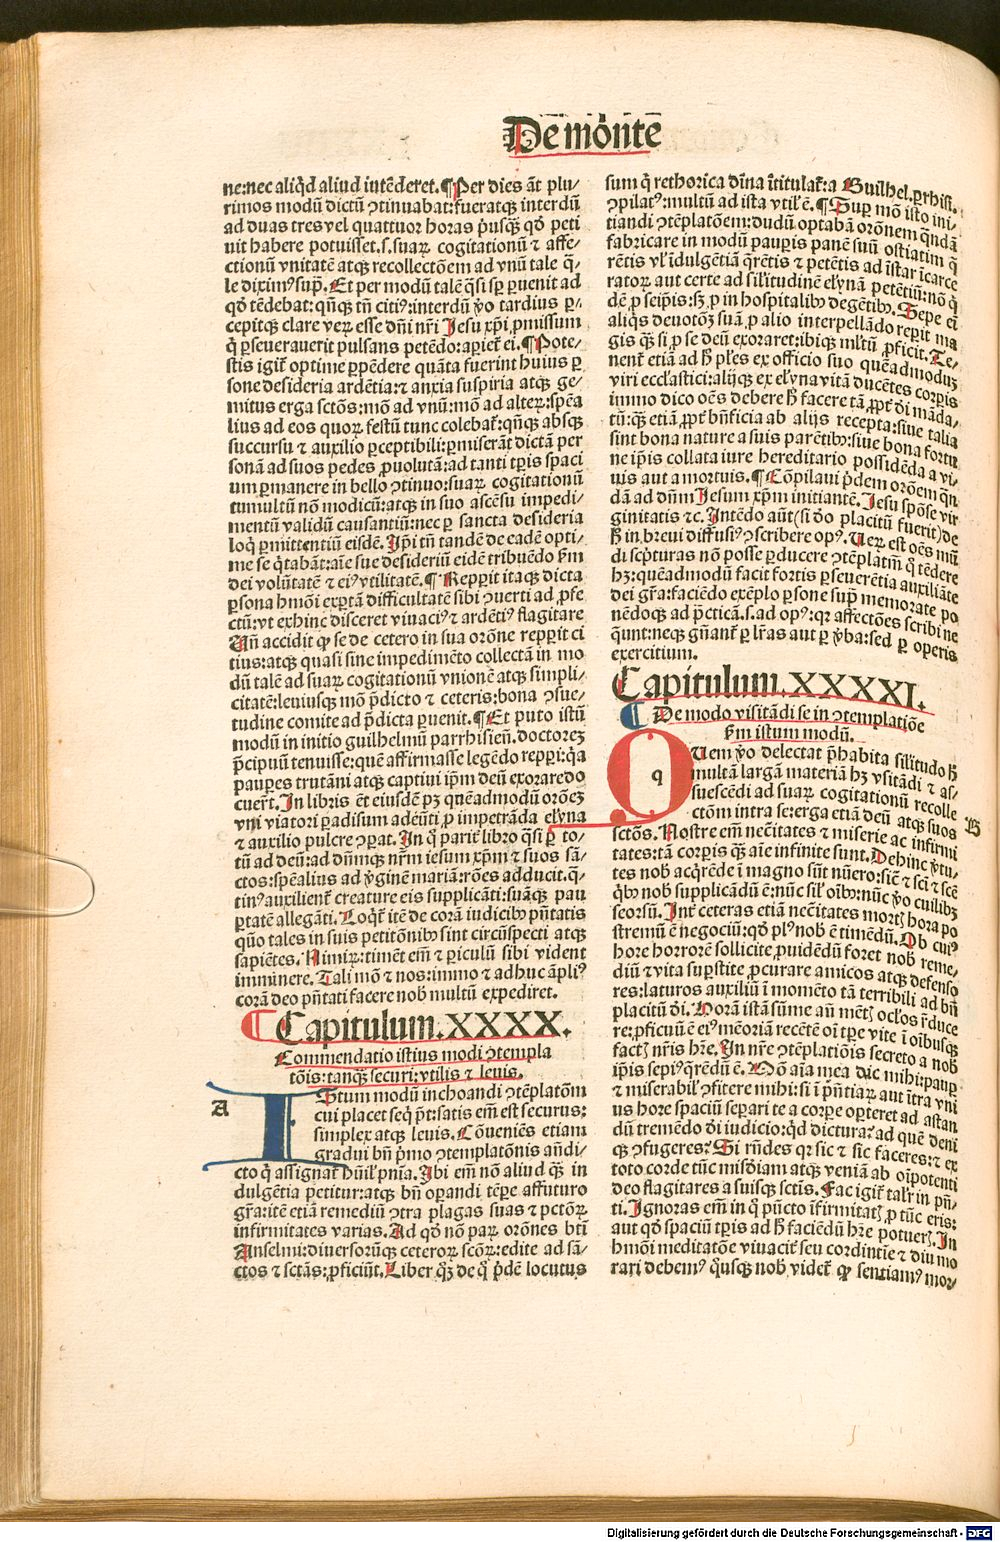 De mōnte
ne:nec aliq̄d aliud intēderet.¶Per dies āt plu⸗
rimos modū dictū ꝯtinuabat:fueratqꝫ interdū
ad duas tres vel quattuor horas p̄usqꝫ qḋ peti
uit habere potuisset.s.suaꝝ cogitationū ⁊ affe⸗
ctionū vnitatē atqꝫ recollectōem ad vnū tale q̄⸗
le diximꝰ sup̄. Et per modū talē q̄si sꝑ ꝑuenit ad
qḋ tēdebat:qn̄qꝫ tn̄ citiꝰ:interdū v̊o tardius ꝑ⸗
cepitqꝫ clare veꝝ esse dn̄i nr̄i Jesu xp̄i ꝓmissum
q̇ ꝑseuerauerit pulsans petēdo:aperiet̄ ei.¶Pote⸗
stis igit̄ optime ꝑpēdere quāta fuerint huius ꝑ
sone desideria ardētia:⁊ anxia suspiria atqꝫ ge⸗
mitus erga sctōs:mō ad vnū:mō ad alteꝝ:spēa
lius ad eos quoꝝ festū tunc colebat̄:qn̄qꝫ absqꝫ
succursu ⁊ auxilio ꝑceptibili:ꝑmiserāt dictā per
sonā ad suos pedes ꝓuolutā:ad tanti tꝑis spaci
um ꝑmanere in bello ꝯtinuo:suaꝝ cogitationū
tumultū nō modicū:atqꝫ in suo ascēsu impedi⸗
mentū validū causantiū:nec ꝑ sancta desideria
loq̇ ꝑmittentiū eisdē. Ip̄i tn̄ tandē de eadē opti⸗
me se q̊tabāt:aīe sue desideriū eidē tribuēdo ẜm
dei volūtatē ⁊ eiꝰ vtilitatē.¶Repperit itaqꝫ dicta
ꝑsona hmōi exꝑtā difficultatē sibi ꝯuerti ad ꝓfe
ctū:vt exhinc disceret viuaciꝰ ⁊ ardētiꝰ flagitare
Un̄ accidit ꝙ se de cetero in sua orōne repperit ci
tius:atqꝫ quasi sine impedimēto collectā in mo
dū talē ad suaꝝ cogitationū vnionē atqꝫ simpli⸗
citatē:leuiusqꝫ mō p̄dicto ⁊ ceteris:bona ꝯsue⸗
tudine comite ad p̄dicta ꝑuenit.¶Et puto istū
modū in initio guilhelmū parrhisieñ.doctoreꝫ
p̄cipuū tenuisse:quē affirmasse legēdo repperi:q̇a
pauꝑes trutāni atqꝫ captiui ip̄m deū exorare do
cuerūt. In libris ēt eiusdē pꝫ quēadmodū orōeꝫ
vni viatori ꝑadisum adeūti,ꝓ impetrāda elyna
⁊ auxilio pulcre ꝯꝑat. In q̊ parit̄ libro q̄si ꝑ to⸗
tū ad deū:ad dn̄mqꝫ nr̄m iesum xp̄m ⁊ suos sā⸗
ctos:spēalius ad v̊ginē mariā:rōes adducit.q̄⸗
tinꝰ auxilient̄ creature eis supplicāti:suāqꝫ pau
ꝑtatē allegāti. Loqt̄ itē de corā iudicibꝰ pn̄tatis
qūo tales in suis petitōnibꝰ sint circūspecti atqꝫ
sapiētes. Nimiꝝ:timēt em̄ ⁊ ꝑiculū sibi vident
imminere. Tali mō ⁊ nos:immo ⁊ adhuc āpliꝰ
corā deo pn̄tati facere nob̄ multū expediret.
Capitulum.XXXX.
Commendatio istius modi ꝯtempla
tōis:tanqꝫ securi:vtilis ⁊ leuis.
A
IStum modū inchoandi ꝯtēplatōm
cui placet seq̇ pt̄:satis em̄ est securus:
simplex atqꝫ leuis. Cōueniēs etiam
gradui bn̄ p̄mo ꝯtemplatōnis an̄di⸗
cto q̇ assignat̄ hūil' pn̄ia. Ibi em̄ nō aliud qꝫ in
dulgētia petitur:atqꝫ bn̄ oꝑandi tēpe affuturo
gr̄a:itē etiā remediū ꝯtra plagas suas ⁊ pctōꝝ
infirmitates varias. Ad qḋ nō paꝝ orōnes bt̄i
Anselmi:diuersorūqꝫ ceteroꝝ scōꝝ:edite ad sā⸗
ctos ⁊ sctās:ꝓficiūt. Liber qꝫ de q̊ p̄dē locutus
sum q̇ rethorica dīna ītitulat̄:a Guilhel.ꝑrhisi.
ꝯpilatꝰ:multū ad ista vtil' ē.¶Suꝑ mō isto ini⸗
tiandi ꝯtēplatōem:dudū optabā orōnem qn̄dā
fabricare in modū pauꝑis panē suū ostiatim q̄
rētis vl' īdulgētiā q̄rētis ⁊ petētis ad īstar īcarce
ratoꝝ aut certe ad sil'itudinē elynā petētiū:nō q̇
dē ꝓ seip̄is:sꝫ ꝓ in hospitalibꝰ degētibꝰ. Sepe eī
aliq̇s deuotōꝫ suā,ꝓ alio interpellādo repperit ma
gis qꝫ si ꝓ se deū exoraret:ibiqꝫ ml'tū ꝓficit. Te⸗
nent̄ etiā ad h̄ p̄les ex officio suo quēadmodūꝫ
viri eccl'astici:alijqꝫ ex elyna vitā ducētes corꝑis
immo dico oēs debere h̄ facere tā ꝓpt̄ di māda⸗
tū:qꝫ etiā ꝓpt̄ bn̄ficia ab alijs recepta:siue talia
sint bona nature a suis parētibꝰ:siue bona fortu
ne ip̄is collata iure hereditario possidēda a vi⸗
uis aut a mortuis.¶Cōpilaui p̄dem orōem qn̄
dā ad dn̄m Jesum xp̄m initiantē. Jesu spōse vir
ginitatis ⁊c. Intēdo aūt(si do placitū fuerit)de
h̄ in breui diffusiꝰ ꝯscribere opꝰ. Ueꝝ est oēs mū
di scpturas nō posse ꝑducere ꝯtēplatīm q̊ tēdere
hꝫ:quēadmodū facit fortis ꝑseuerētia auxiliāte
dei gr̄a:faciēdo exēplo ꝑsone sup̄ memorate po
nēdoqꝫ ad pcticā.s.ad opꝰ:qꝛ affectōes scribi ne
q̄unt:neqꝫ gn̄ant̄ ꝑ lr̄as aut ꝑ v̊ba:sed ꝑ oꝑeris
exercitium.
Capitulum.XXXXI.
¶De modo visitādi se in ꝯtemplatiōe
ẜm istum modū.
q
QUem v̊o delectat p̄habita sil'itudo h̄
multā largā materiā hꝫ vsitādi ⁊ as⸗
suescēdi ad suaꝝ cogitationū recolle
ctōm intra se:erga etiā deū atqꝫ suos
B
sctōs. Nostre em̄ necītates ⁊ miserie ac infirmi
tates:tā corꝑis qꝫ aīe infinite sunt. Dehinc v̊tu⸗
tes nob̄ acq̇rēde ī magno sūt nūero:siē ⁊ sci ⁊ scē
q̇bꝰ nob̄ supplicādū ē:nūc sil' oībꝰ:nūc v̊o cuilibꝫ
seorsū. Int̄ ceteras etiā necītates mortꝭ hora po
stremū ē negociū:qḋ plꝰ nob̄ ē timēdū. Ob cuiꝰ
hore horrorē sollicite ꝓuidēdū foret nob̄ reme⸗
diū ⁊ vita suꝑstite ꝓcurare amicos atqꝫ defenso
res:laturos auxiliū ī momēto tā terribili ad bn̄
placitū di. Horā istā sūme aū mētꝭ ocl'os r̄duce
re:ꝓficuū ē eiꝰ mēoriā recētē oī tꝑe vite ī oībusqꝫ
factꝭ nr̄is hr̄e. In nr̄e ꝯtēplatiōis secreto a nob̄
ip̄is sepiꝰ q̄rēdū ē. Mō aīa mea dic mihi:pauꝑ
⁊ miserabil' ꝯfitere mihi:si ī pn̄tiaꝝ aut īt̄ra vni
us hore spaciū seꝑari te a corꝑe oꝑteret ad astan
dū tremēdo di iudicio:qḋ dictura? ad quē deni
qꝫ ꝯfugeres? Si rn̄des qꝛ sic ⁊ sic faceres:⁊ ex
toto corde tūc misc̄diam atqꝫ veniā ab oīpotenti
deo flagitares a suisqꝫ sctīs. Fac igit̄ tal'r in pn̄⸗
ti. Ignoras em̄ in q̊ pūcto īfirmitatꝭ,ꝓ tūc eris:
aut qḋ spaciū tꝑis ad h̄ faciēdū hr̄e poteris. In
hmōi meditatōe viuacit̄ seu cordintīe ⁊ diu mo
rari debemꝰ q̊usqꝫ nob̄ videt̄ ꝙ sentiamꝰ mor⸗
Digitalisierung gefördert durch die Deutsche Forschungsgemeinschaft - DFG